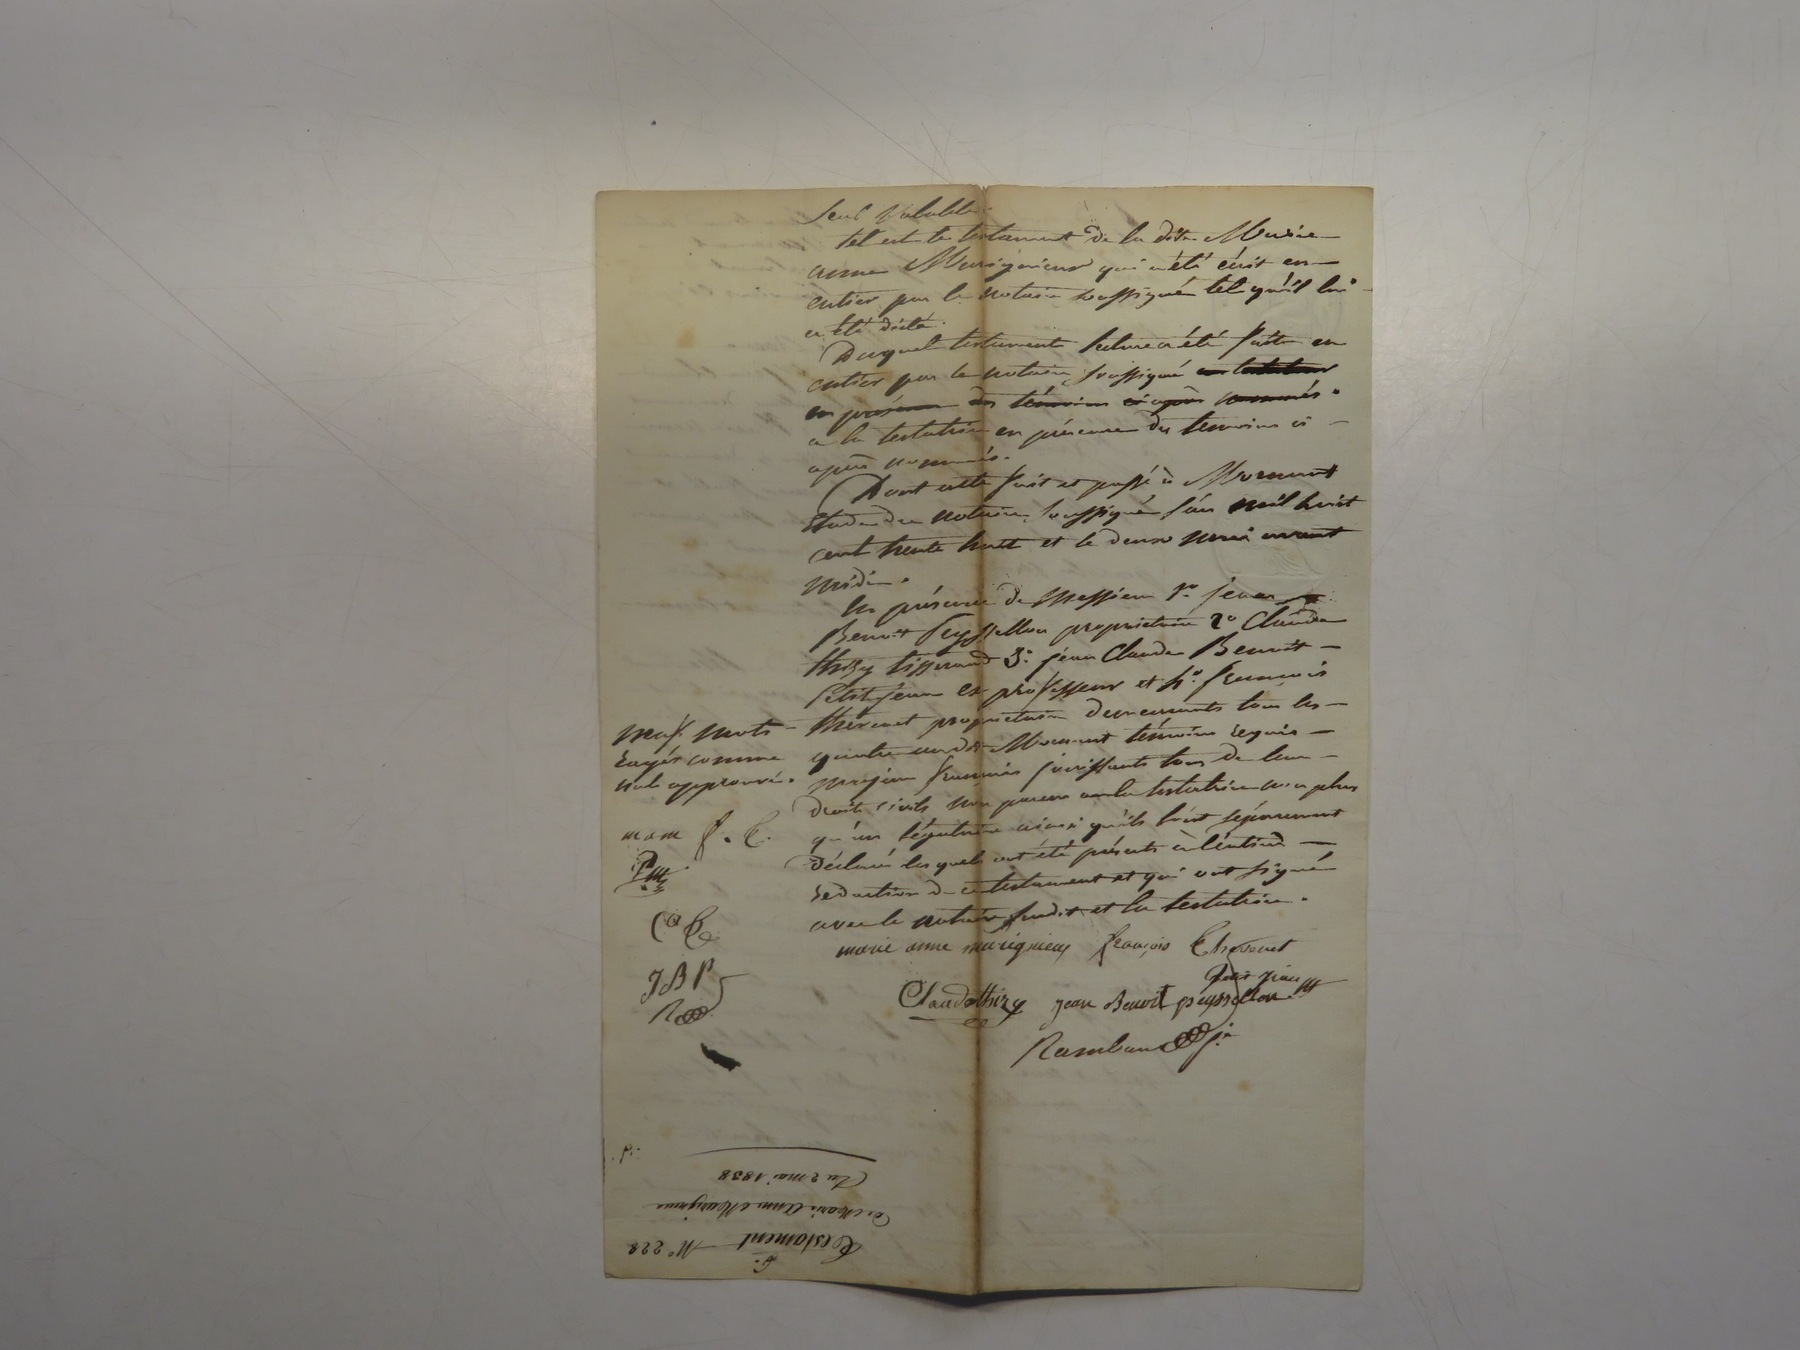 seul valable.
tel est le testament de la dite Marie
anne Marignieux qui a été écrit en
entier par le notaire soussigné tel qu'il lui
a été dicté.
Duquel testament lecture a été faite en
entier par le notaire soussigné
en présence des témoins ci après nommés
a la testatrice en présence des temoins ci
après nommés.
Dont acte fait et passé à Mornant
Etude du notaire soussigné l'an mil huit
cent trente huit et le deux mai avant
midi.
En présence de Messieurs 1° jean
Benoit peyssellon propriétaire 2° Claude
thizy tisserand 3° jean Claude Benoit
petitjean ex professeur et 4° françois
thevenet propriétaire demeurants tous les
quatre au dit Mornant témoins requis
majeurs français jouissants tous de leurs
droits civils non parens a la testatrice non plus
qu'aux légataires ainsi qu'ils l'ont séparement
déclaré lesquels ont été présents à l'entière
rédaction de ce testament et qui ont signé
avec le notaire susdit et la testatrice.
marie anne marignieux françois thevenet
petit jean
Claude thizy jean Benoit peyssellon
Rambaud
neuf mots
rayés comme
nuls approuvés.
mam f. t.
Ptj
C T
JBP
R
Testament N° 228
de Marie Anne Marignieux
Du 2 mai 1838